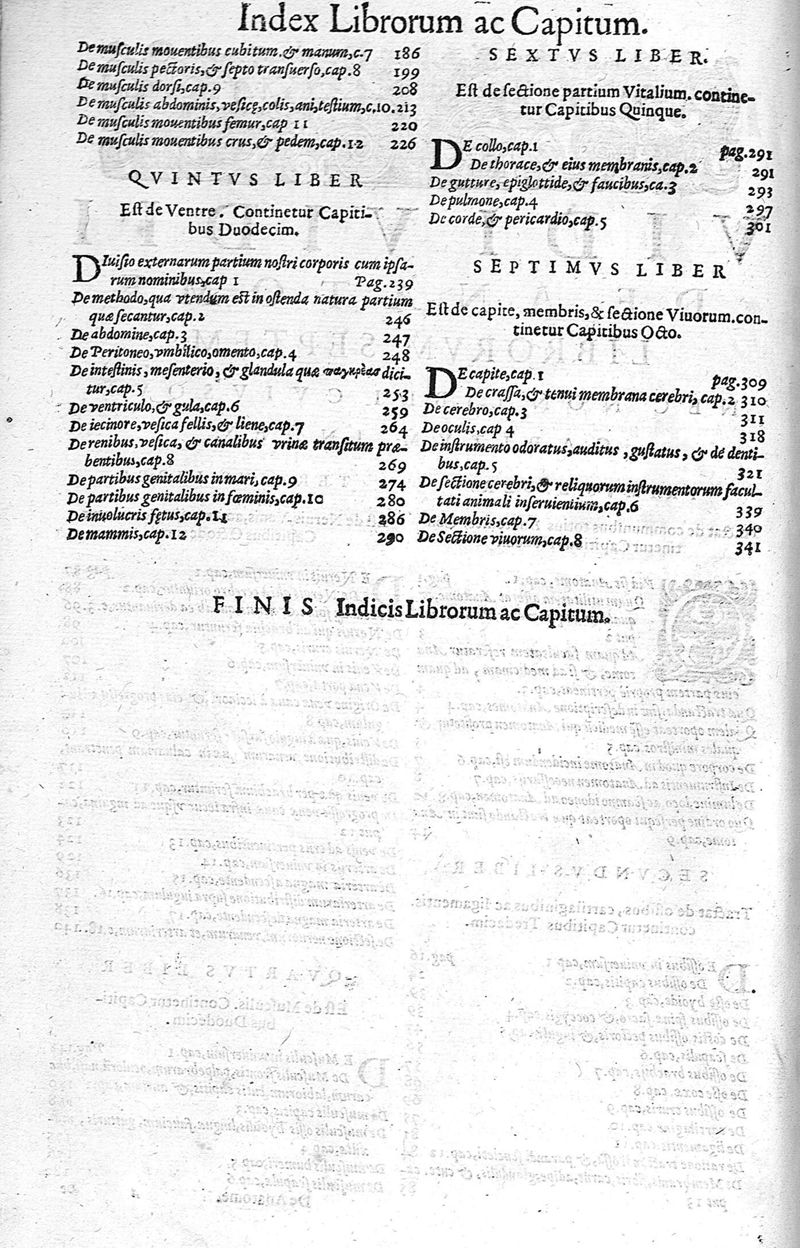 Index Librorum ac Capitum.
De musculis mouentibus cubitum, & manum, c.7 186
De musculis pectoris, & septo transuerso, cap.8 199
De musculis dorsi, cap.9 208
De musculis abdominis, vesicę, colis, ani, testium, c.10. 213
De musculis mouentibus femur, cap 11 220
De musculis mouentibus crus, & pedem, cap.12 226
QVINTVS LIBER
Est de Ventre. Continetur Capiti-
bus Duodecim.
DIuisio externarum partium nostri corporis cum ipsa-
rum nominibus, cap 1 Pag.239
De methodo, qua vtendum est in ostenda natura partium
quæ secantur, cap.2 246
De abdomine, cap.3 247
De Peritoneo, vmbilico, omento, cap.4 248
De intestinis, mesenterio, & glandula quæ παγκρέας dici-
tur, cap.5 253
De ventriculo, & gula, cap.6 259
De iecinore, vesica fellis, & liene, cap.7 264
De renibus, vesica, & canalibus vrinæ transitum præ-
bentibus, cap.8 269
De partibus genitalibus in mari, cap.9 274
De partibus genitalibus in fœminis, cap.10 280
De inuolucris fętus, cap.11 286
De mammis, cap.12 290
SEXTVS LIBER.
Est de sectione partium Vitalium. contine-
tur Capitibus Quinque.
DE collo, cap.1 pag.291
De thorace, & eius membranis, cap.2 291
De gutture, epiglottide, & faucibus, ca.3 293
De pulmone, cap.4 297
De corde, & pericardio, cap.5 301
SEPTIMVS LIBER
Est de capite, membris, & sectione Viuorum. con-
tinetur Capitibus Octo.
DE capite, cap.1 pag.309
De crassa, & tenui membrana cerebri, cap.2 310
De cerebro, cap.3 311
De oculis, cap 4 318
De instrumento odoratus, auditus, gustatus, & de denti-
bus, cap.5 321
De sectione cerebri, & reliquorum instrumentorum facul-
tati animali inseruientium, cap.6 339
De Membris, cap.7 340
De Sectione viuorum, cap.8 341
FINIS Indicis Librorum ac Capitum.